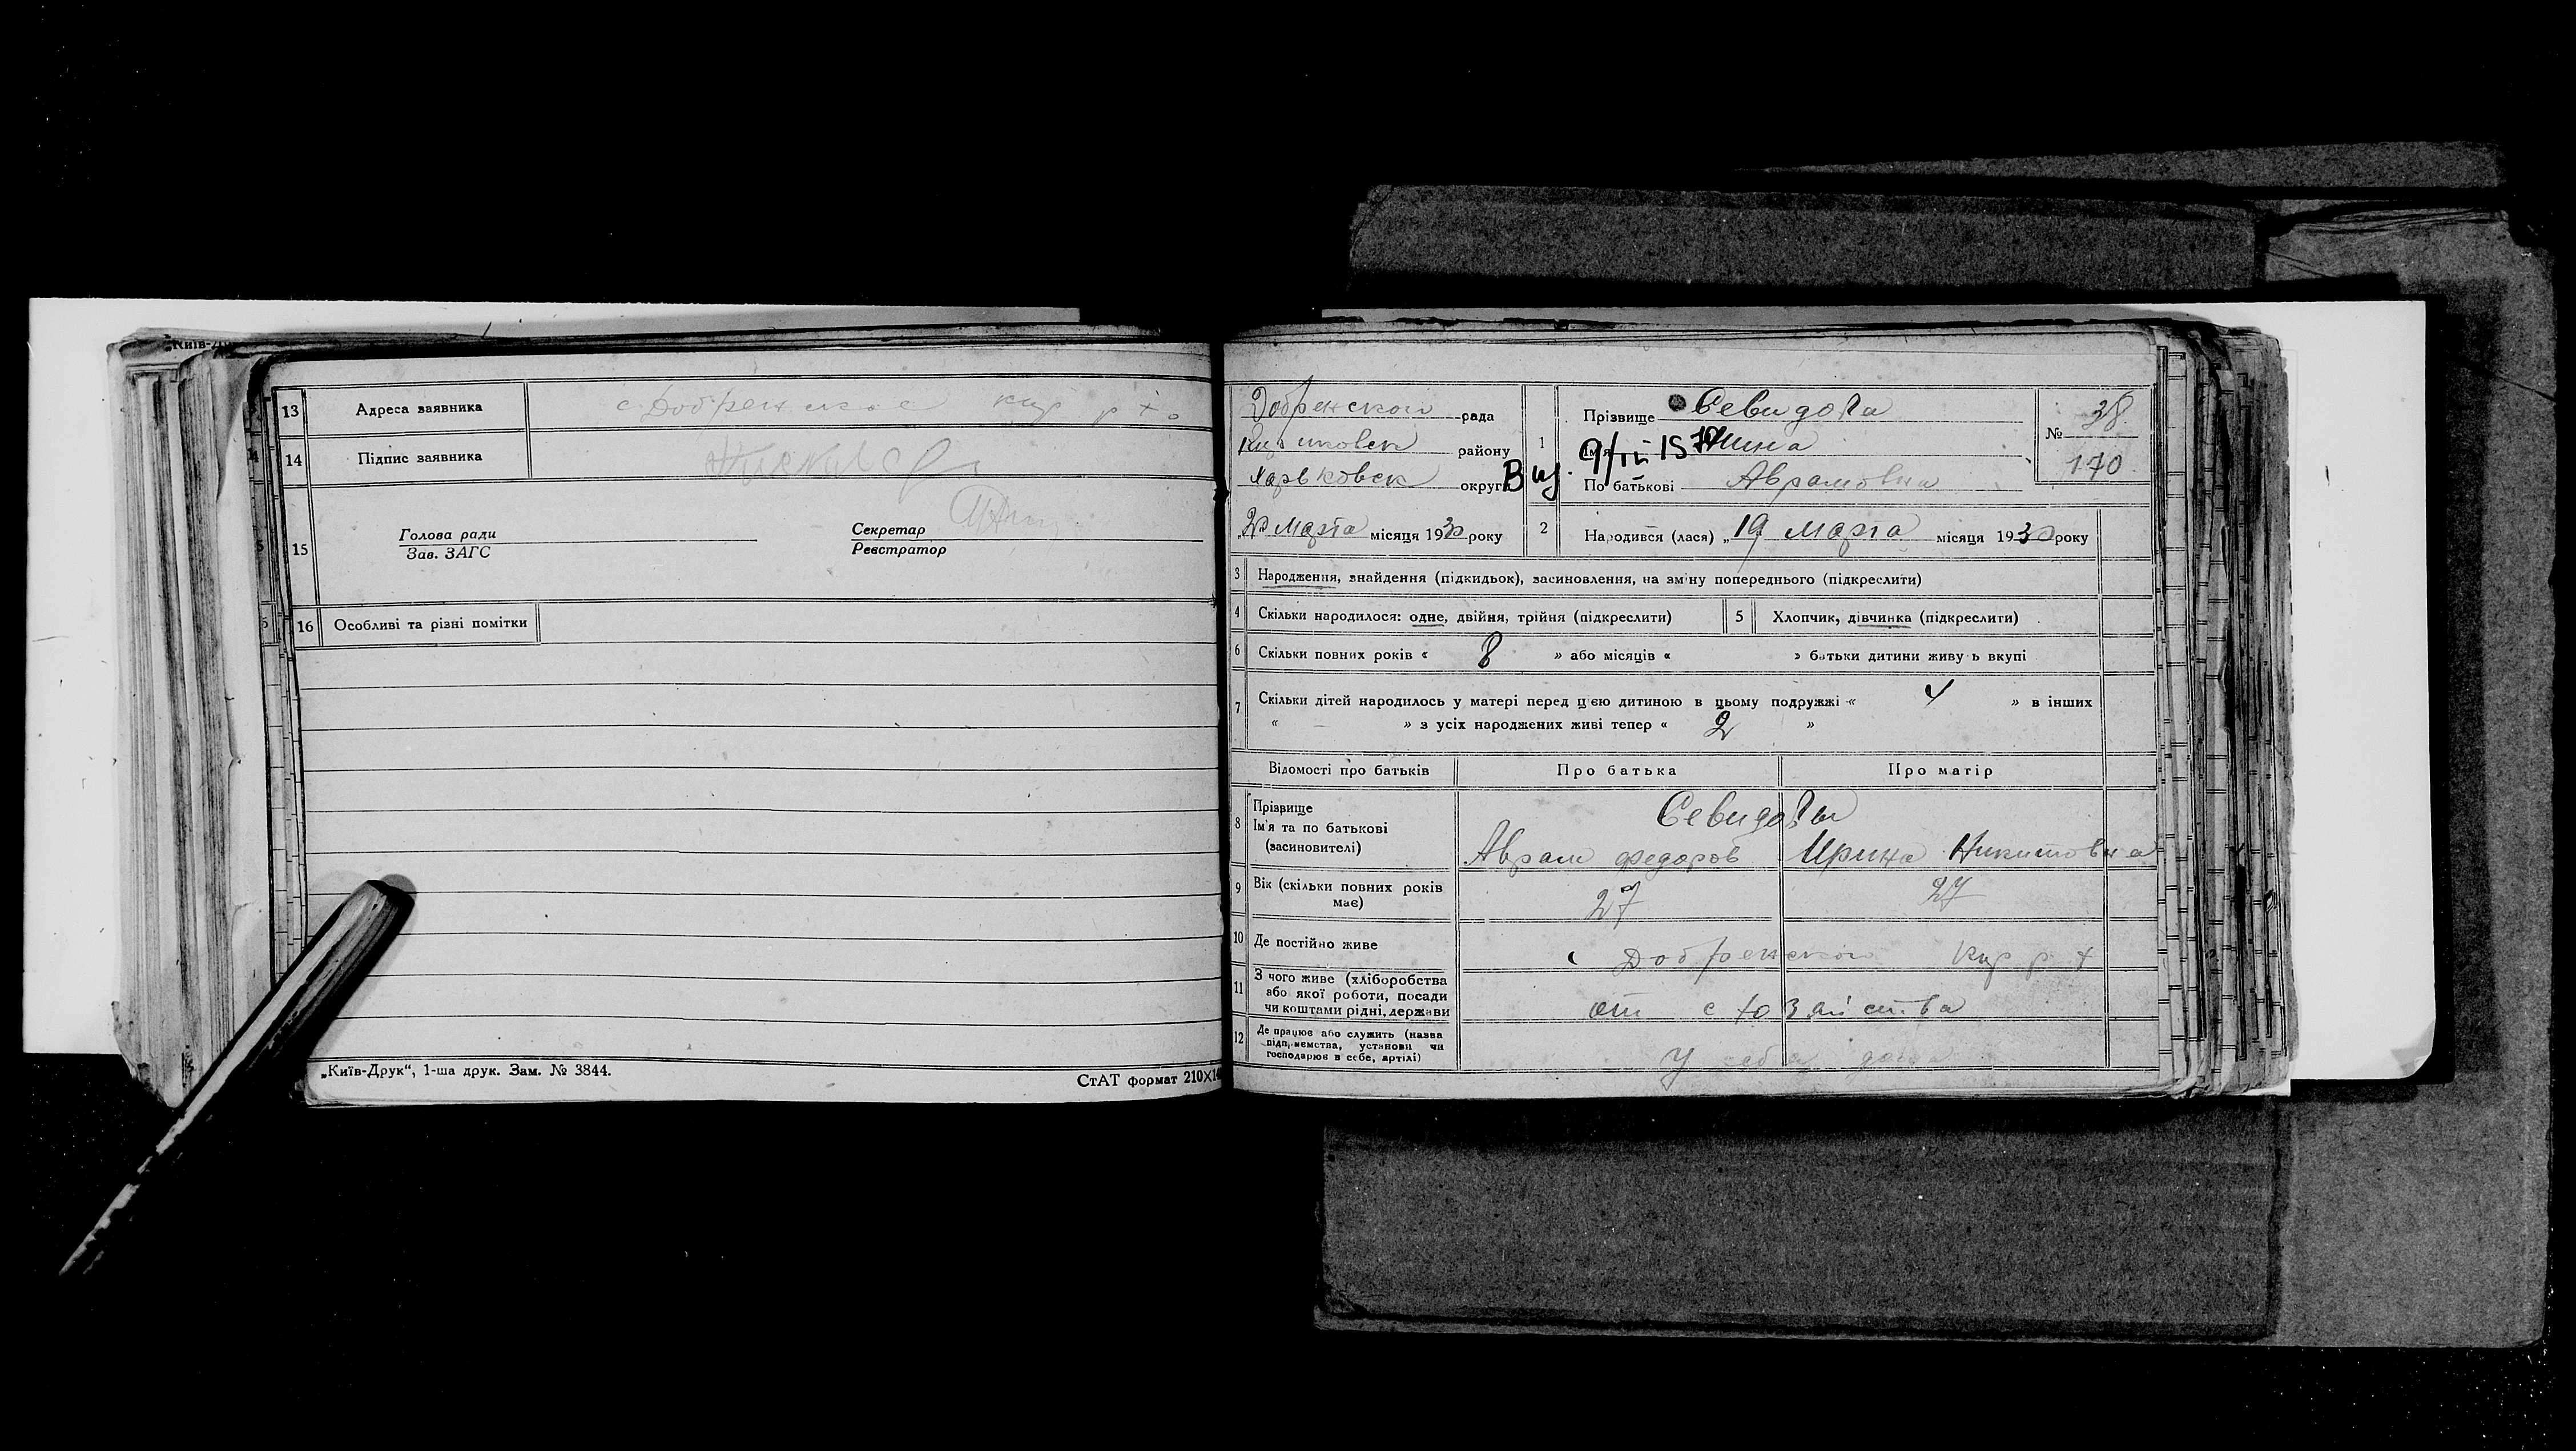 „Київ-Др
13 Адреса заявника с Добренское
14 Підпис заявника
15 Голова ради
Зав. ЗАГС
Секретар
Реєстратор
16 Особливі та різні помітки
„Київ-Друк“, 1-ша друк. Зам. № 3844.
СтАТ формат 210×14
Добренской рада
району
Харьковск округ
20 Марта місяця 1930 року
1 Прізвище Севидова
Ім'я
По батькові Аврамовна
№ 38
170
2 Народився (лася) „19 Марта місяця 1930 року
3 Народження, знайдення (підкидьок), засиновлення, на зміну попереднього (підкреслити)
4 Скільки народилося: одне, двійня, трійня (підкреслити)
5 Хлопчик, дівчинка (підкреслити)
6 Скільки повних років « 8 » або місяців « » батьки дитини живуть вкупі
7 Скільки дітей народилось у матері перед цією дитиною в цьому подружжі « 4 » в інших
« — » з усіх народжених живі тепер « 2 »
Відомості про батьків Про батька Про матір
8 Прізвище
Ім'я та по батькові
(засновителі)
Севидовы
Аврам Федоров Ирина Никитовна
9 Вік (скільки повних років
має) 27 27
10 Де постійно живе с Добренской
11 З чого живе (хліборобства
або якої роботи, посади
чи коштами рідні, держави
от с хозяйства
12 Де працює або служить (назва
підприємства, установи чи
господарює в себе, артілі)
У себя дома